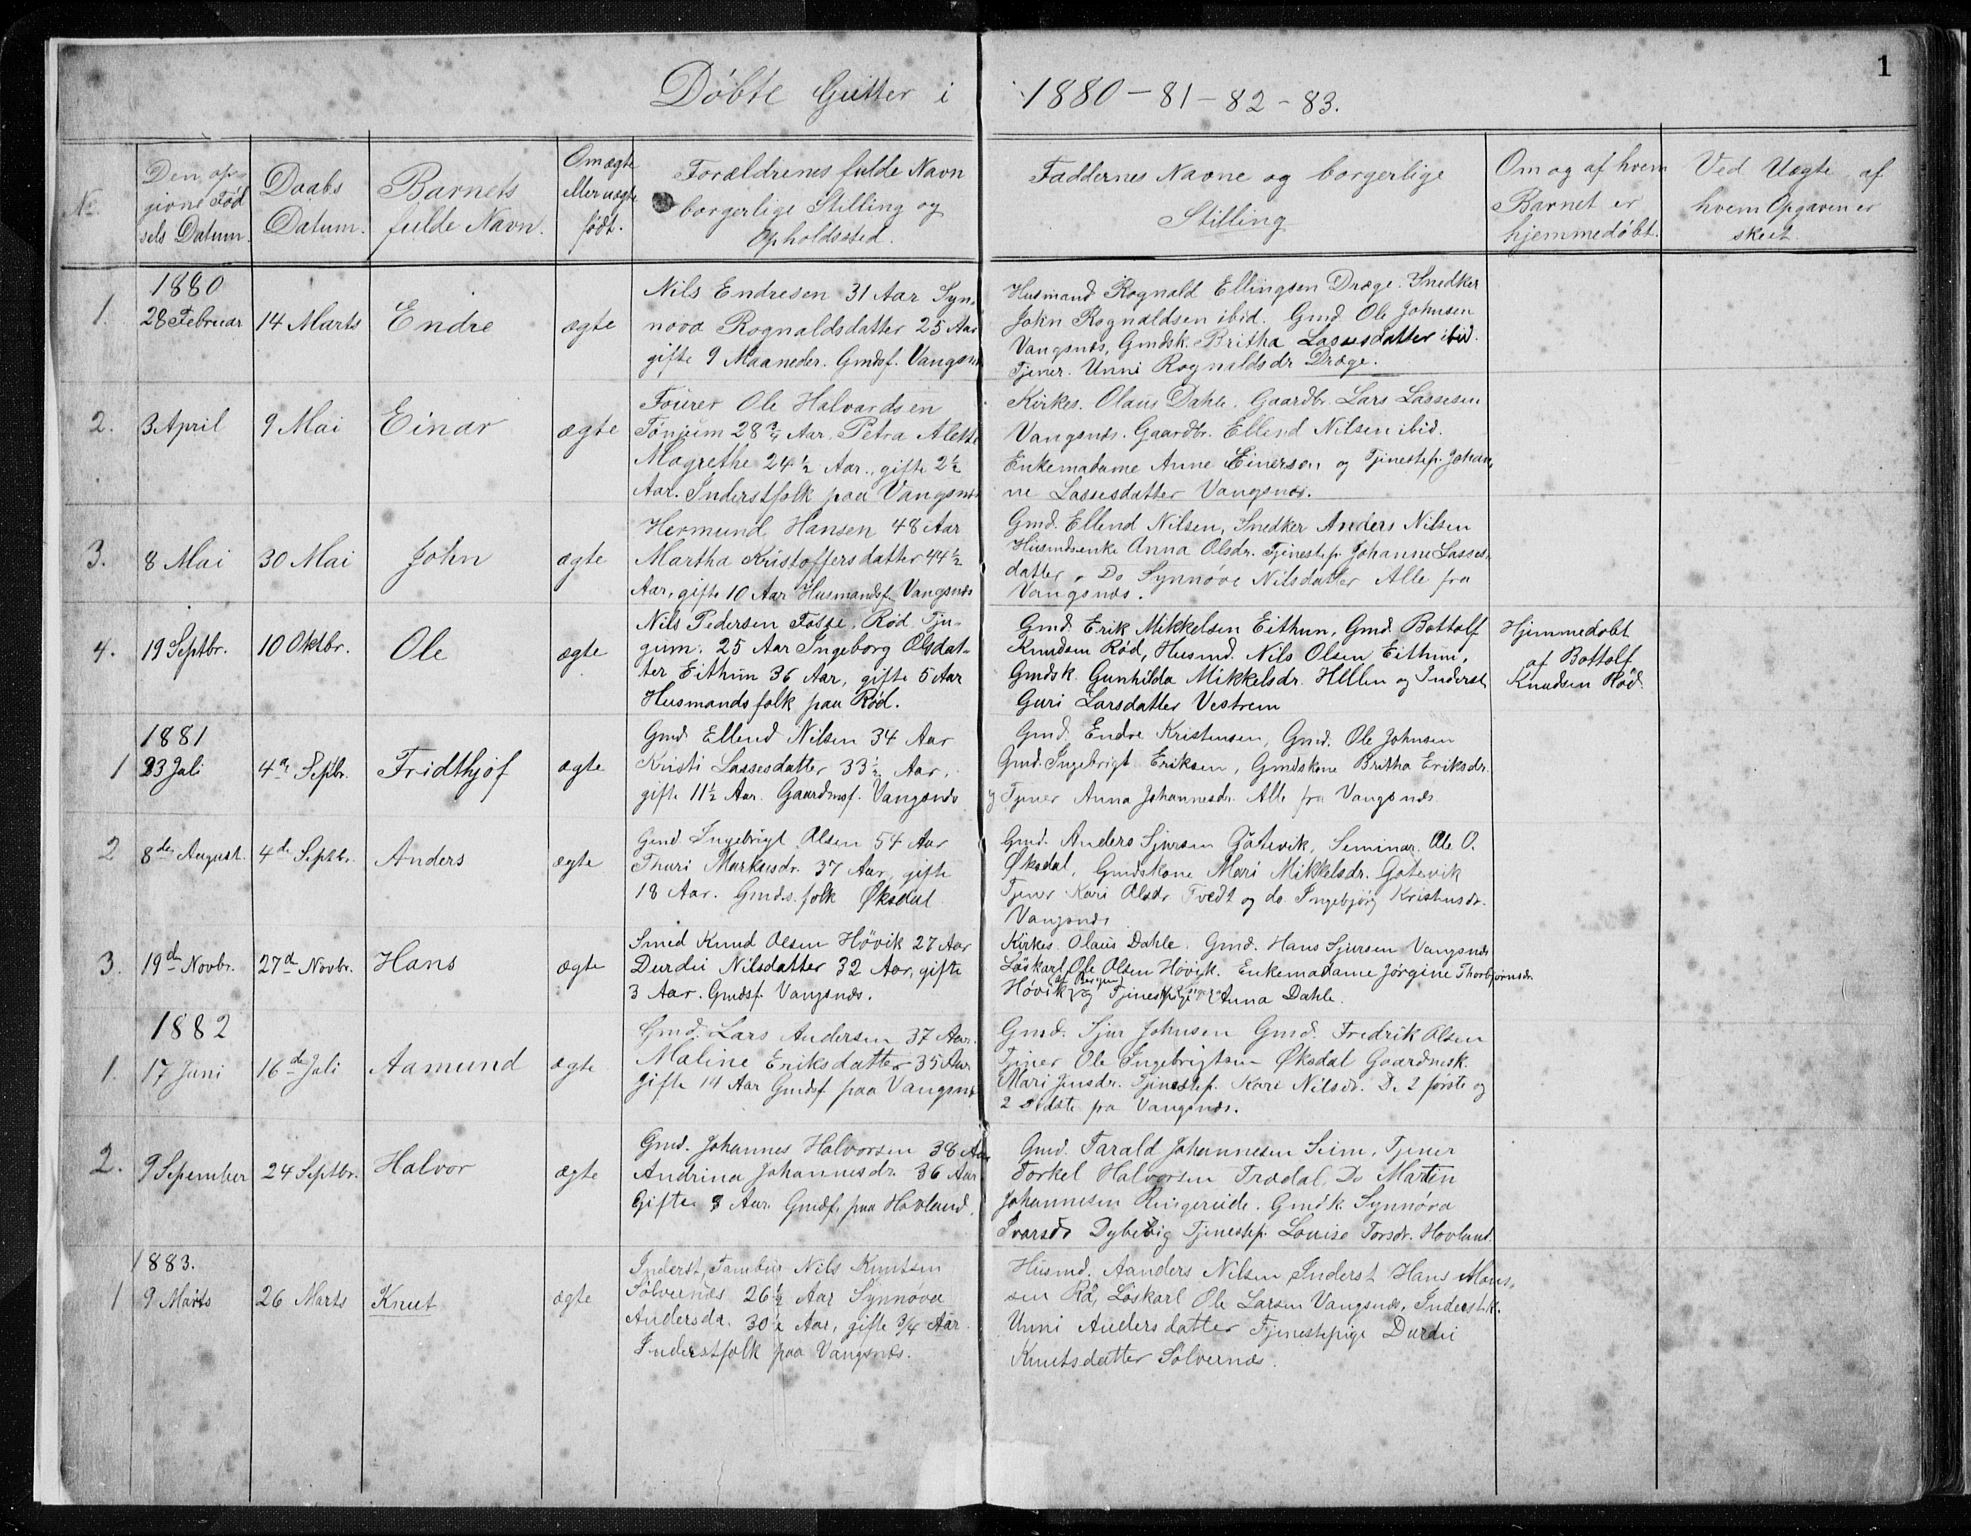 1
Døbte Gutter i 1880-81-82-83.
No.
Den opgivne Fødsels Datum.
Daabs Datum.
Barnets fulde Navn.
Om ægte eller uægte født.
Forældrenes fulde Navn
borgerlige Stilling og
Opholdssted.
Faddernes Navne og borgerlige
Stilling
Om og af hvem
Barnet er
hjemmedøbt.
Ved Uægte af
hvem Opgaven er
skeet.
1880
1. 28 Februar 14 Marts Endre ægte
Nils Endresen 31 Aar Syn-
nova Rognaldsdatter 25 Aar
gifte 9 Maaneder. Gmdsf. Vangsnæs
Husmand Rognald Ellingsen Drage. Snedker
John Rognaldsen ibid. Gmd. Ole Johnsen
Vangsnæs, Gmdsk. Britha Lassesdatter ibid.
Tjener. Unni Rognaldsdr Drage.
2. 3 April 9 Mai Einar ægte
Fourer Ole Halvardsen
Tönjum 28 3/4 Aar, Petra Alette
Magrethe 24 1/2 Aar., gifte 2 1/2
Aar. Inderstfolk paa Vangsnæs
Kirkes. Olaus Dahle. Gaardbr. Lars Lassesen
Vangsnæs. Gaardbr. Ellend Nilsen ibid.
Enkemadame Anne Einerson og Tjenestep. Johan-
ne Lassesdatter Vangsnæs.
3. 8 Mai 30 Mai John ægte
Hermund Hansen 48 Aar
Martha Kristoffersdatter 44 1/2
Aar, gifte 10 Aar Husmandsf. Vangsnæs
Gmd. Ellend Nilsen, Snedker Anders Nilsen
Husmdsenke Anna Olsdr. Tjenestep. Johanne Lasses-
datter, Do Synnøve Nilsdatter Alle fra
Vangsnæs.
4. 19 Septbr. 10 Oktbr. Ole ægte
Nils Pedersen Fosse, Rød. Tju-
gum. 25 Aar Ingeborg Olsdat-
ter Eithun 36 Aar, gifte 5 Aar
Husmandsfolk paa Rød.
Gmd. Erik Mikkelsen Eithun, Gmd. Bottolf
Knudsen Rød, Husmd. Nils Olsen Eithun,
Gmdsk. Gunhilda Mikkelsdr. Hellen og Inderst
Guri Larsdatter Vestrem
Hjemmedøbt
af Bottolf
Knudsen Rød.
1881
1 23 Juli 4de Septbr. Fridthjof ægte
Gmd. Ellend Nilsen 34 Aar
Kristi Lassesdatter 33 1/2 Aar,
gifte 11 1/2 Aar. Gaardmsf. Vangsnæs
Gmd. Endre Kristensen, Gmd. Ole Johnsen
Gmd. Ingebrigt Eriksen, Gmdskone Britha Eriksdr.
og Tjener Anna Johannesdr. Alle fra Vangsnæs
2 8de August. 4de Septbr. Anders ægte
Gmd Ingebrigt Olsen 54 Aar
Thuri Markusdr. 37 Aar, gifte
18 Aar. Gmds.folk Øksdal
Gmd. Anders Sjursen Götevik, Seminar. Ole O.
Øksdal, Gmdskone Mari Mikkelsdr. Götevik
Tjener Kari Olsdr Tvedt og do. Ingebjörg Kristensdr.
Vangsnæs
3. 19de Novbr. 27de Novbr. Hans ægte
Smed Knud Olsen Hövik 27 Aar
Durdei Nilsdatter 32 Aar, gifte
3 Aar. Gmdsf. Vangsnæs.
Kirkes. Olaus Dahle. Gmd. Hans Sjursen Vangsnæs
Løskarl Ole Olsen Høvik. Enkemadame Jørgine Thorbjørnsdr.
Høvik af Bergen og Tjenestepige Anna Dahle.
1882
1. 17 Juni 16de Juli Aamund ægte
Gmd. Lars Andersen 37 Aar.
Maline Eriksdatter 35 Aar
gifte 14 Aar Gmdsf. paa Vangsnæs
Gmd. Sjur Johnsen Gmd. Fredrik Olsen
Tjener Ole Ingebrigtsen Øksdal Gaardmsk.
Mari Jensdr. Tjenestep. Kari Nilsdr. De 2 første og
2 sidste fra Vangsnæs.
2. 9 September 24 Septbr. Halvor ægte
Gmd. Johannes Halvorsen 38 Aar
Andrina Johannesdr. 36 Aar
Gifte 8 Aar. Gmdsf. paa Hovland.
Gmd. Tarald Johannesen Seim, Tjener
Torkel Halvorsen Tradal, Do Martin
Johannesen Ringereide. Gmdsk. Synnøva
Ivarsdr Dybevig Tjenestep. Louise Torsdr. Hovland.
1883.
1 9 Marts 26 Marts Knut ægte
Inderst, Tambur Nils Knutsen
Sølvernæs 26 1/2 Aar Synnøva
Andersdr. 30 1/2 Aar, gifte 3/4 Aar.
Inderstfolk paa Vangsnæs.
Husmd. Aanders Nilsen, Inderst Hans Mons-
sen Rå, Løskarl Ole Larsen Vangsnæs, Inderstk.
Unni Andersdatter Tjenestepige Durdei
Knutsdatter Sølvernæs.